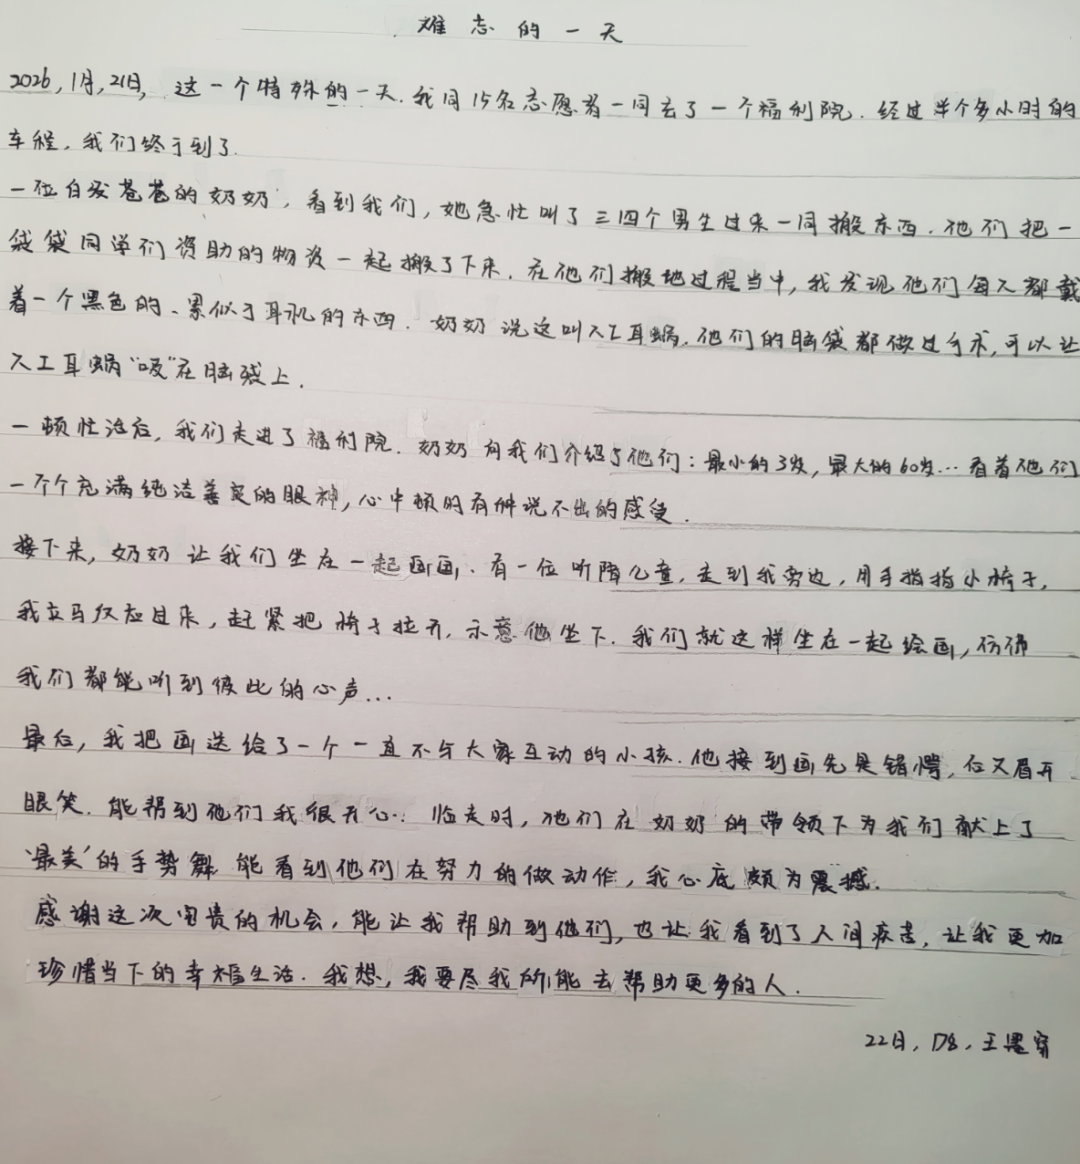 难志的一天
2026,1月,21日, 这一个特殊的一天.我同15名志愿者一同去了一个福利院.经过半个多小时的
车程,我们终于到了.
一位白发苍苍的奶奶,看到我们,她急忙叫了三四个男生过来一同搬东西.他们把一
袋袋同学们资助的物资一起搬了下来.在他们搬地过程当中,我发现他们每人都戴
着一个黑色的、累似于耳机的东西.奶奶说这叫人工耳蜗,他们的脑袋都做过手术,可以让
人工耳蜗“吸”在脑袋上.
一顿忙活后,我们走进了福利院.奶奶向我们介绍了他们:最小的3岁,最大的60岁...看着他们
一个个充满纯洁善良的眼神,心中顿时有种说不出的感受.
接下来,奶奶让我们坐在一起画画.有一位听障儿童,走到我旁边,用手指指小椅子,
我立马反应过来,赶紧把椅子拉开,示意他坐下.我们就这样坐在一起绘画,仿佛
我们都能听到彼此的心声...
最后,我把画送给了一个一直不与大家互动的小孩.他接到画先是错愕,后又眉开
眼笑.能帮到他们我很开心.临走时,他们在奶奶的带领下为我们献上了
‘最美’的手势舞.能看到他们在努力的做动作,我心底颇为震撼.
感谢这次宝贵的机会,能让我帮助到他们,也让我看到了人间疾苦,让我更加
珍惜当下的幸福生活.我想,我要尽我所能去帮助更多的人.
22日, D8, 王